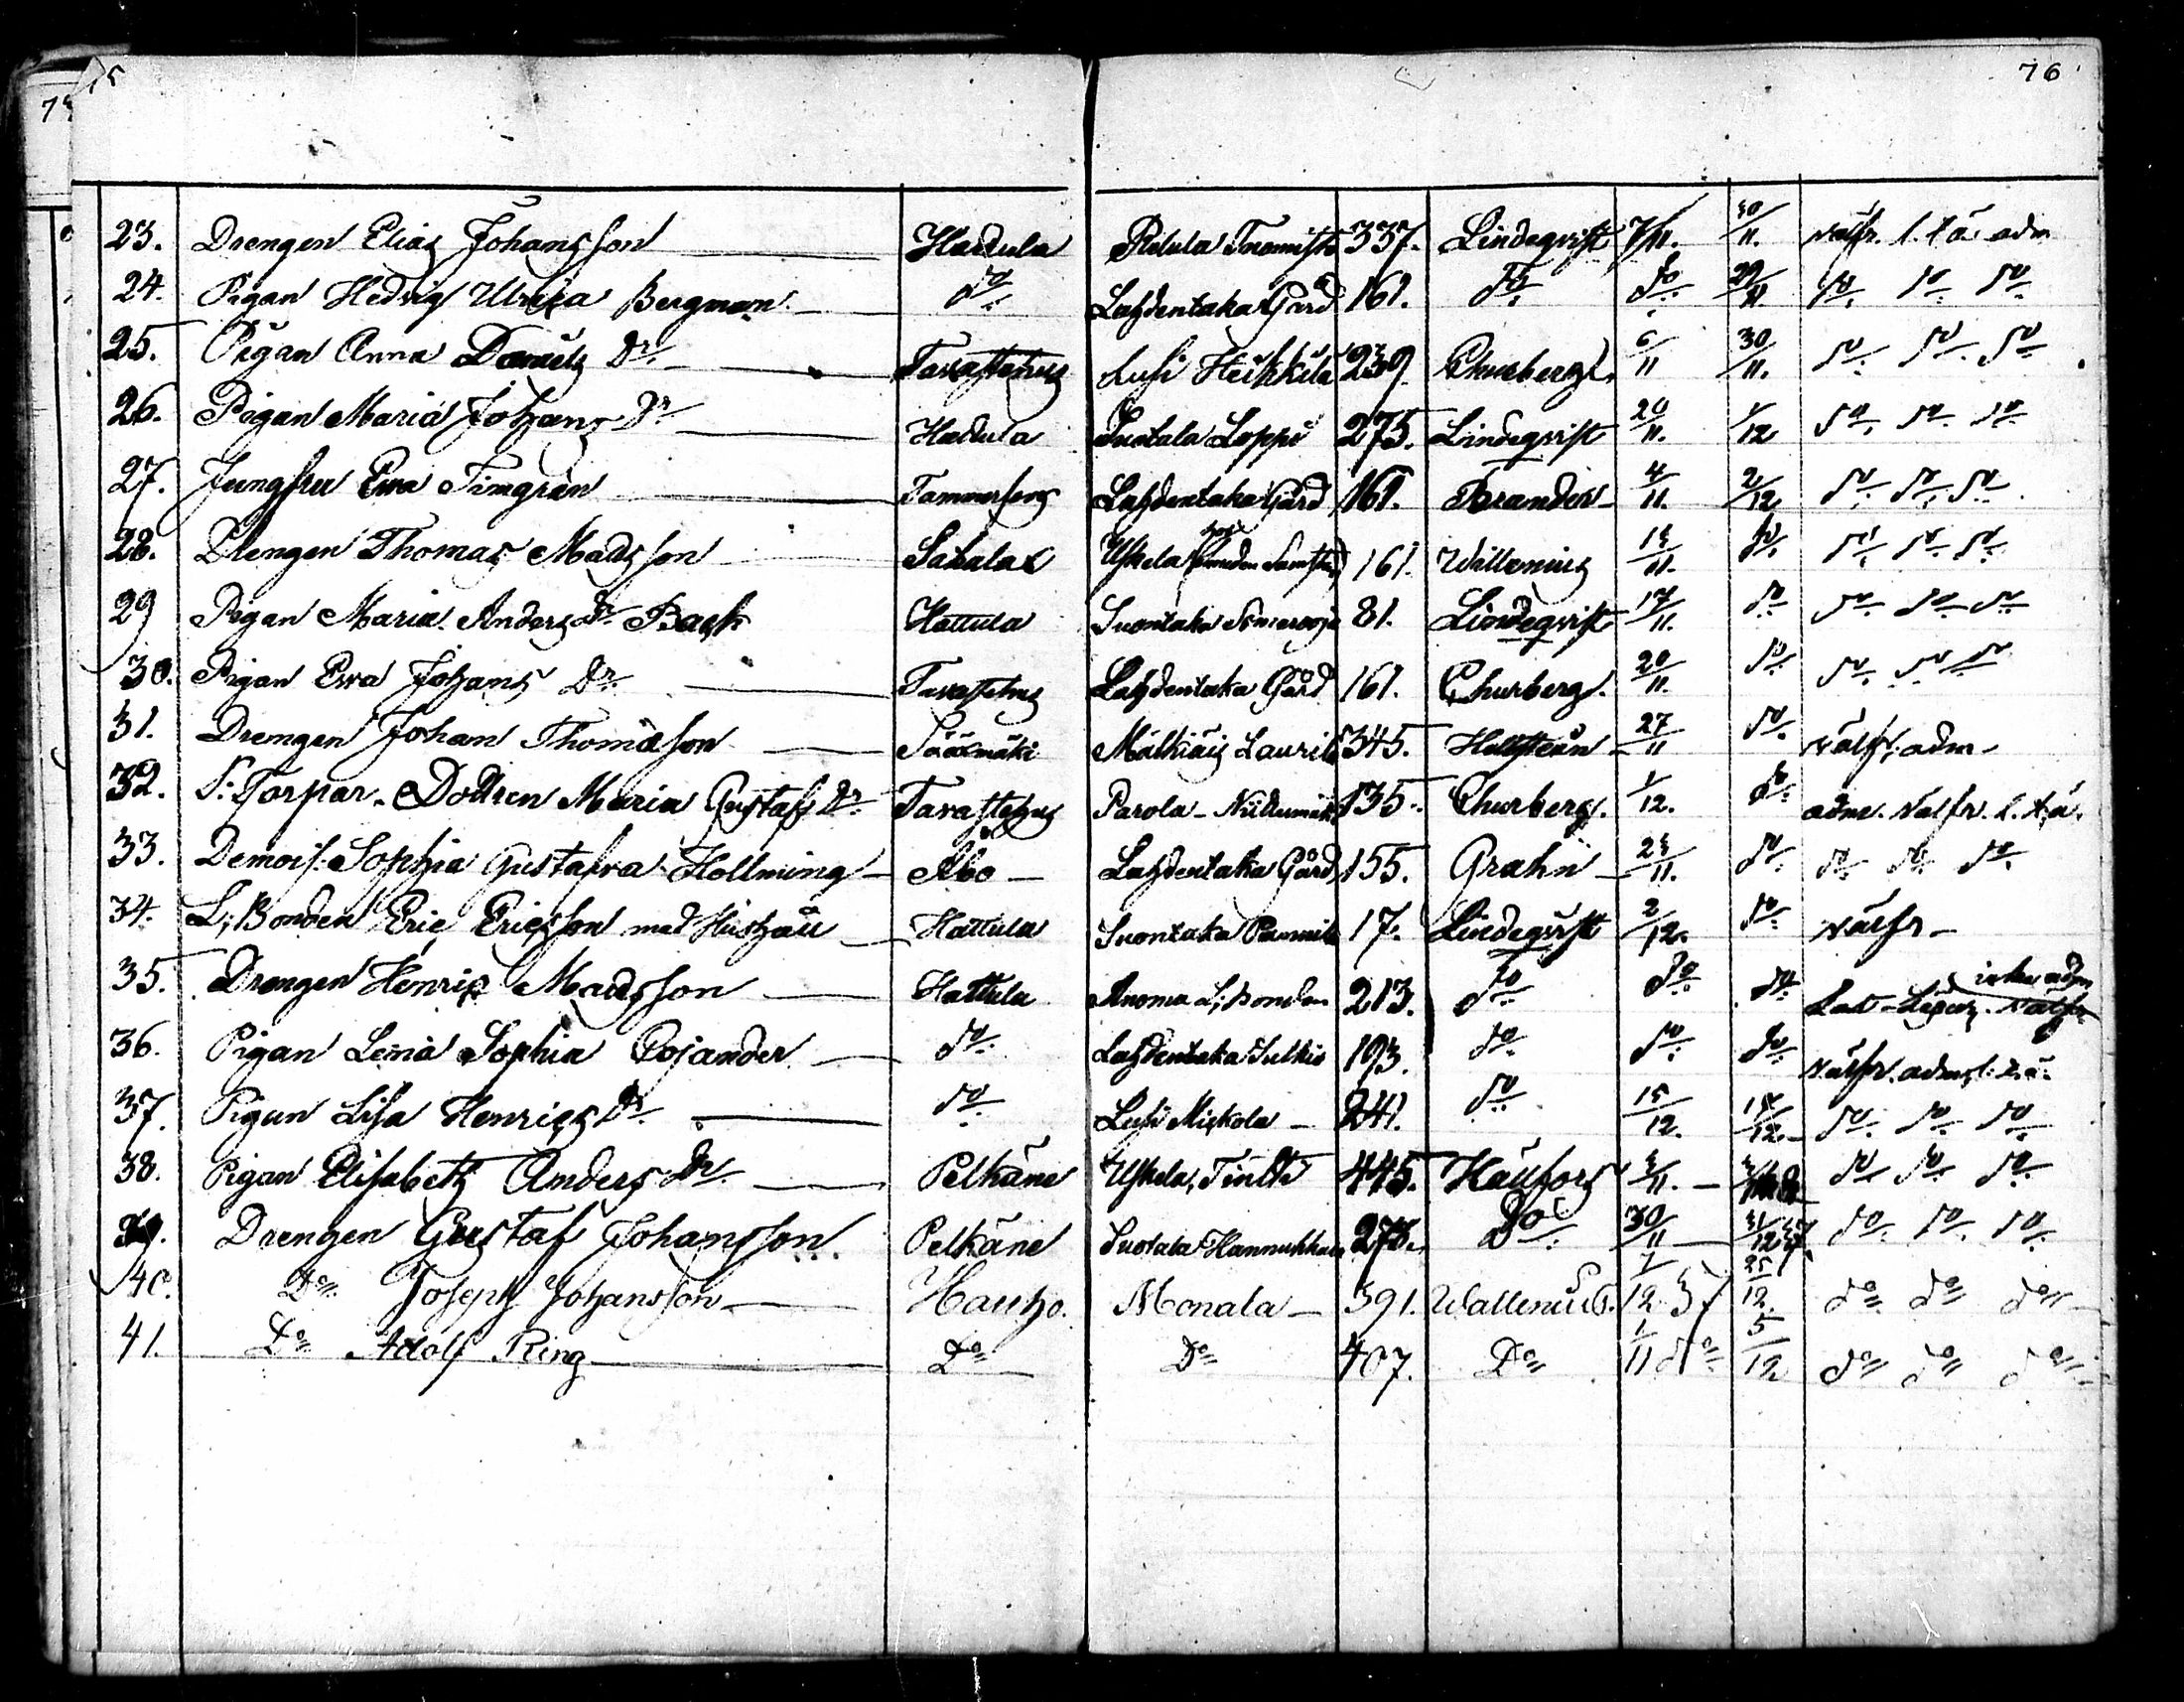 75 76
23. Drengen Elias Johansson Hattula Pelula 337. Lindeqvist 7/11. 30/11. välfr. l. t. ä. adm
24. Pigan Hedvig Ulrica Bergman do Lahdentaka Gård 161. do do 29/11 do do do
25. Pigan Anna Daniels Dr. Tavastehus Lusi Heikkilä 239. Churberg. 6/11 30/11. do do do
26. Pigan Maria Johans Dr Hattula Suotala Loppi 275. Lindeqvist 20/11. 1/12 do do do
27. Jungfru Ewa Timgrén Tammerfors Lahdentaka Gård 161. Brander 4/11. 2/12 do do do
28. Drengen Thomas Madsson Sahalax Uskela 161. Willenius 13/11. do do do do
29 Pigan Maria Anders Dr Back Hattula Suontaka 81. Lindeqvist 17/11. do do do do
30. Pigan Ewa Johans Dr. Tavastehus Lahdentaka Gård 161. Churberg. 20/11. do do do do
31. Drengen Johan Thomasson Sääxmäki Mälkiäis Laurila 345. Hellsteén 27/11 do välfr. adm
32. Torpar-Dottren Maria Gustafs Dr Tavastehus Parola 135. Churberg. 1/12. do adm. välfr. l. t. ä.
33. Demois. Sophia Gustafva Hollming Åbo Lahdentaka Gård 155. Grahn 23/11. do do do do
34. L; Bonden Eric Ericsson med Hustru Hattula Suontaka 17. Lindeqvist 2/12. do välfr
35. Drengen Henric Madsson Hattula Anoma L; Bonden 213. do do do välfr
36. Pigan Lena Sophia Cojander do Lahdentaka 193. do do do välfr. adm. l. t. ä.
37. Pigan Lisa Henrics Dr. do Lusi Mickola 241. do 15/12. 12. do do do
38. Pigan Elisabeth Anders Dr. Pelkäne Uskela, 445. 11. do do do
39. Drengen Gustaf Johansson. Pelkäne Suotala Hannukkala 275. Do 30/11 31/12 37 do do do
40. Do Joseph Johansson Hauho. Monala 391. Wallenius. 1/12 37 25/12. do do do
41. Do Adolf Ring Do Do 407. Do 1/11 do 5/12 do do do